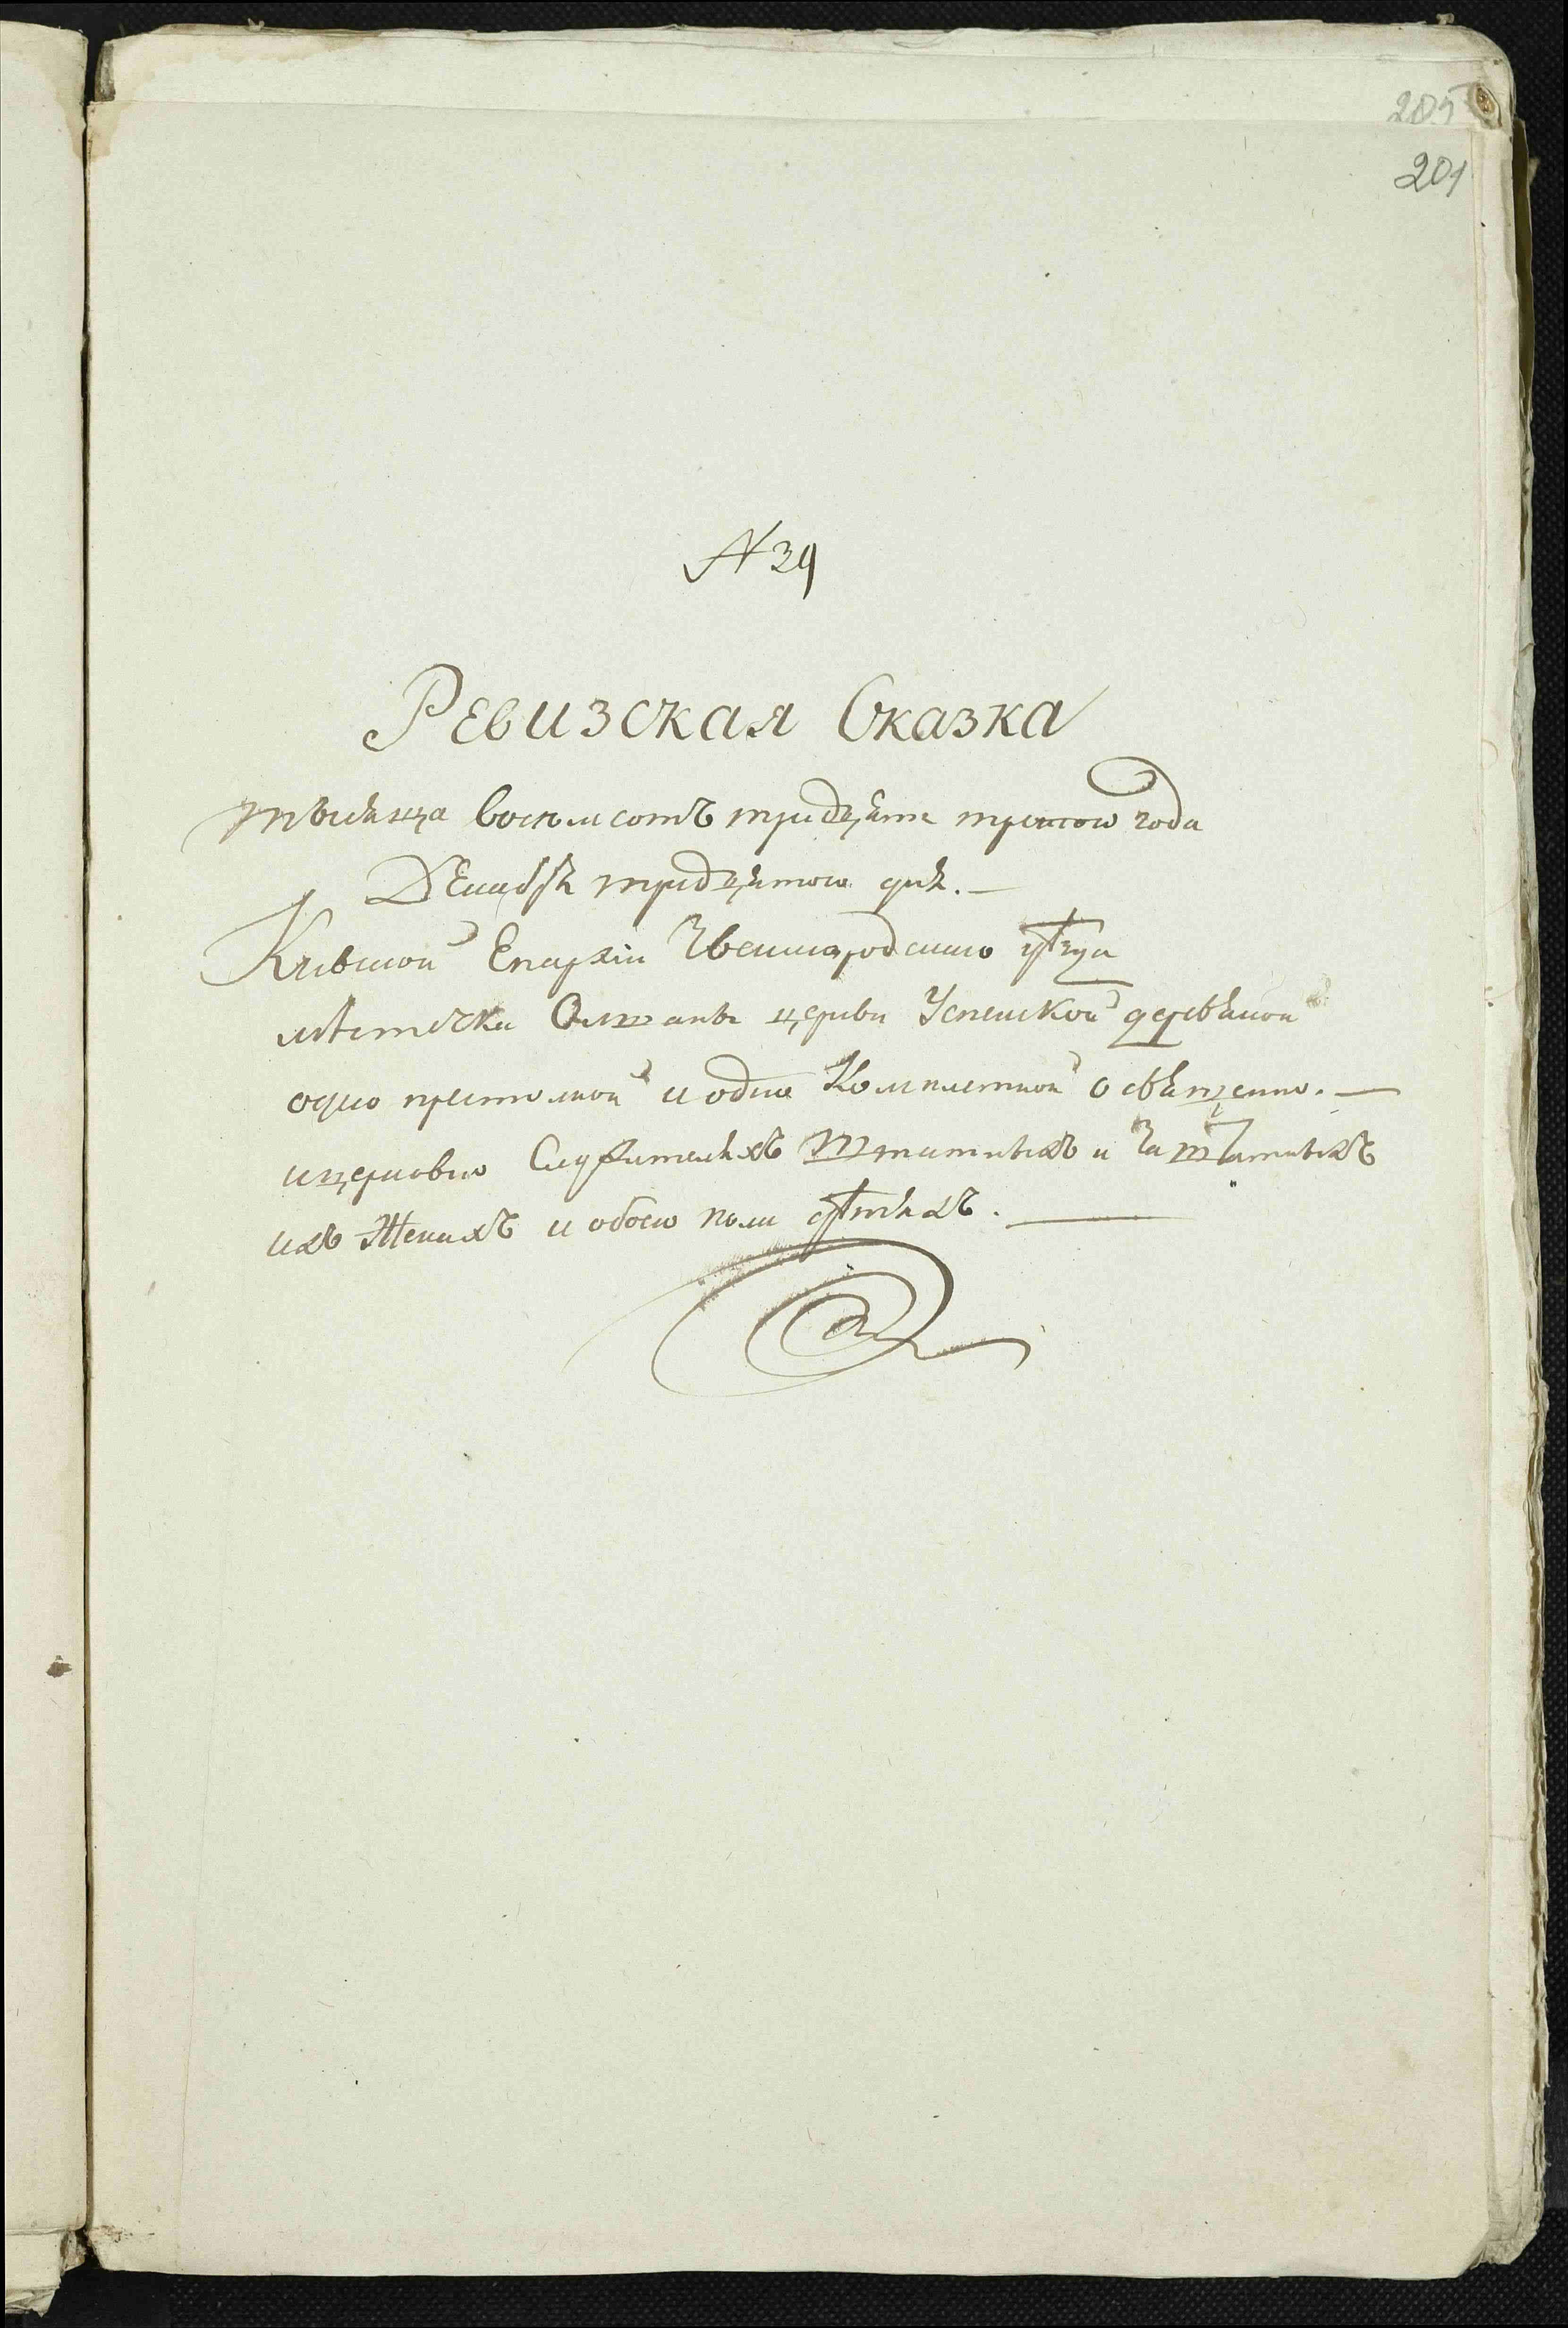 205
201
N 39
Ревизская Сказка
тысяща восемсотъ тридцять третого года
Декабря тридцятого дня. —
Кіевской Епархіи Звенигородскаго уѣзда
мѣстечка Ольшаны церкви Успенской деревяной
одно престолной и одно Комплетной о священно. —
ицерковно Служителяхъ Штатныхъ и Заштатныхъ
ихъ Женахъ и обоего пола дѣтяхъ. —